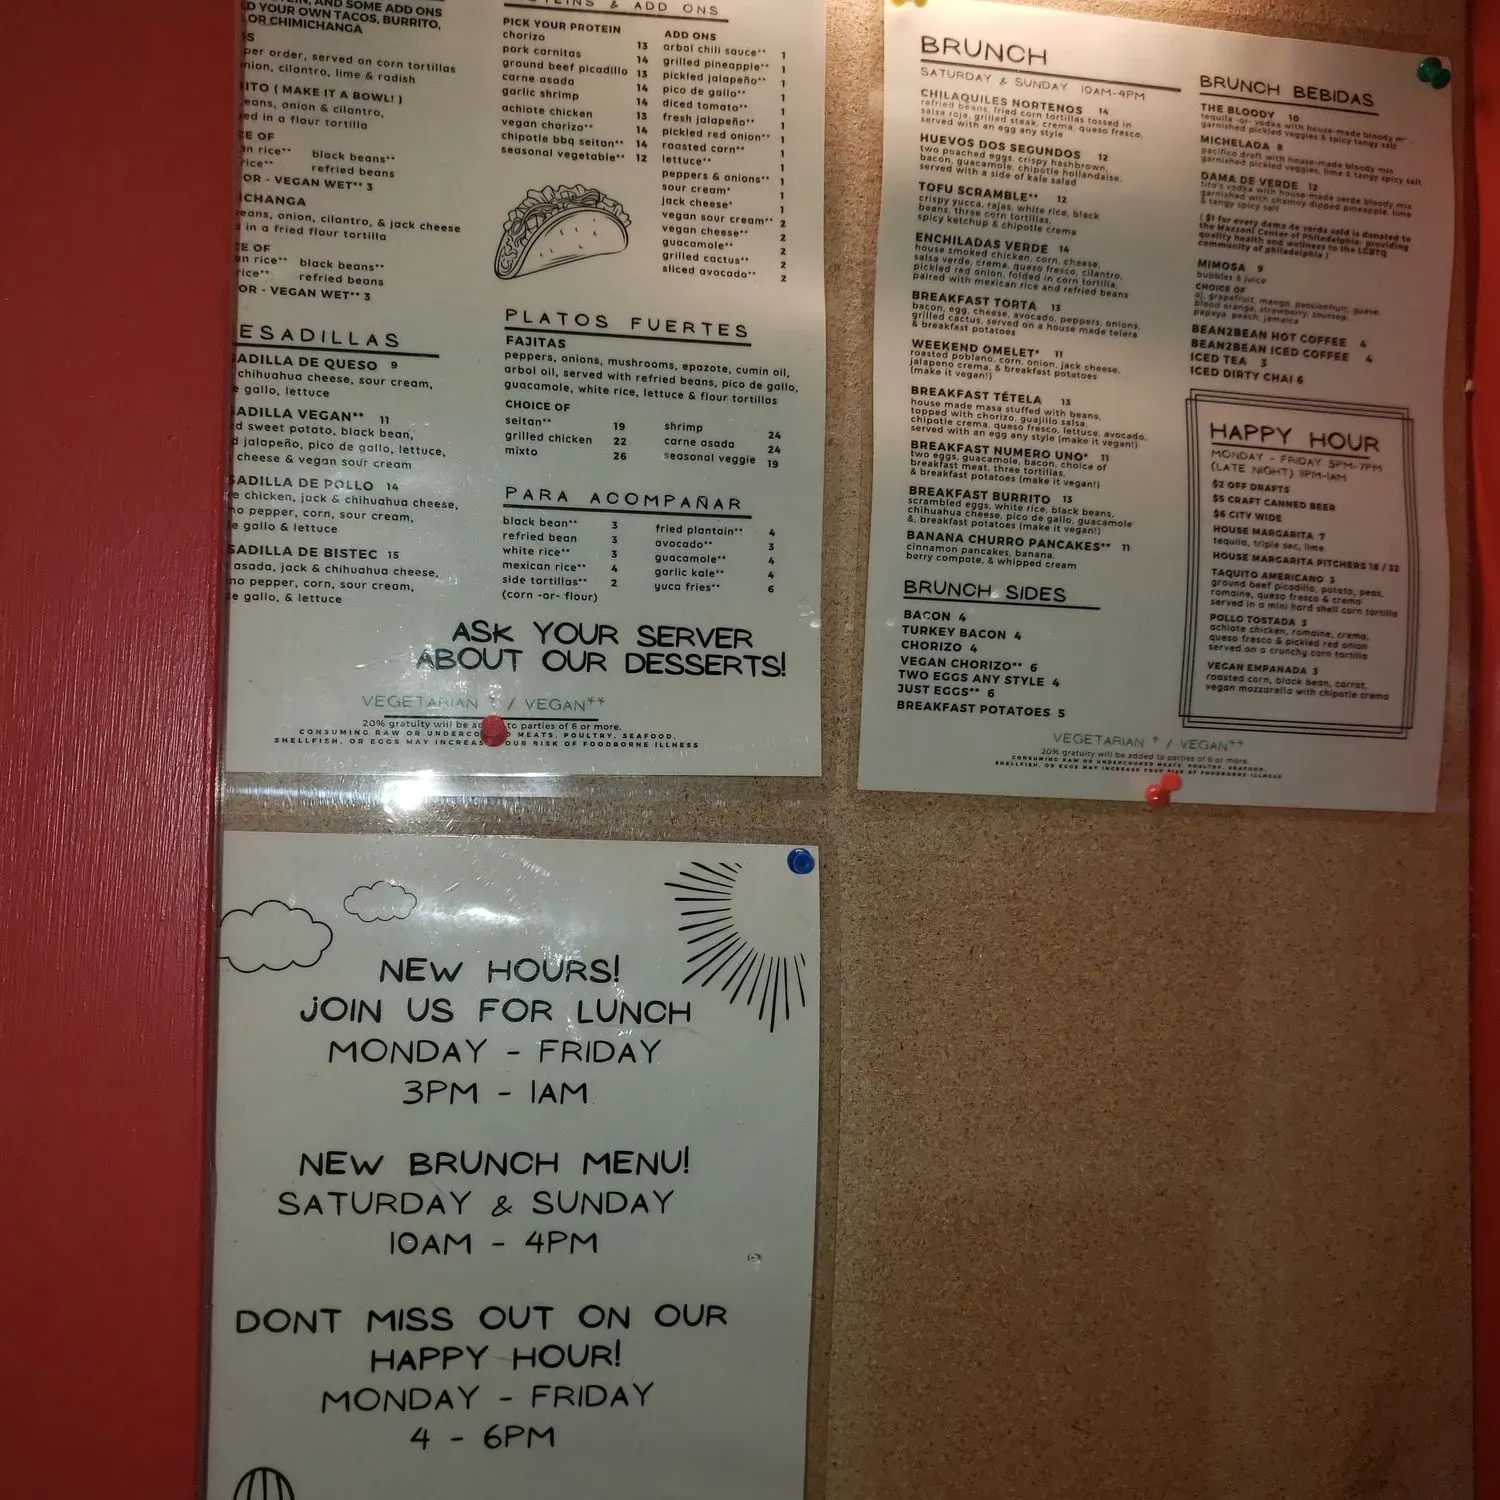 AND SOME ADD ONS
D YOUR OWN TACOS, BURRITO,
OR CHIMICHANGA
per order, served on corn tortillas
nion, cilantro, lime & radish
ITO ( MAKE IT A BOWL! )
eans, onion & cilantro,
ed in a flour tortilla
CE OF
an rice** black beans**
rice** refried beans
OR - VEGAN WET** 3
CHANGA
eans, onion, cilantro, & jack cheese
d in a fried flour tortilla
CE OF
an rice** black beans**
rice** refried beans
OR - VEGAN WET** 3
ESADILLAS
SADILLA DE QUESO 9
chihuahua cheese, sour cream,
e gallo, lettuce
SADILLA VEGAN** 11
d sweet potato, black bean,
d jalapeño, pico de gallo, lettuce,
cheese & vegan sour cream
SADILLA DE POLLO 14
e chicken, jack & chihuahua cheese,
no pepper, corn, sour cream,
e gallo & lettuce
SADILLA DE BISTEC 15
asada, jack & chihuahua cheese,
no pepper, corn, sour cream,
e gallo, & lettuce
& ADD ONS
PICK YOUR PROTEIN
chorizo 13
pork carnitas 14
ground beef picadillo 13
carne asada 14
garlic shrimp 14
achiote chicken 13
vegan chorizo** 14
chipotle bbq seitan** 14
seasonal vegetable** 12
ADD ONS
arbol chili sauce** 1
grilled pineapple** 1
pickled jalapeño** 1
pico de gallo** 1
diced tomato** 1
fresh jalapeño** 1
pickled red onion** 1
roasted corn** 1
lettuce** 1
peppers & onions** 1
sour cream* 1
jack cheese* 1
vegan sour cream** 2
vegan cheese** 2
guacamole** 2
grilled cactus** 2
sliced avocado** 2
PLATOS FUERTES
FAJITAS
peppers, onions, mushrooms, epazote, cumin oil,
arbol oil, served with refried beans, pico de gallo,
guacamole, white rice, lettuce & flour tortillas
CHOICE OF
seitan** 19
grilled chicken 22
mixto 26
shrimp 24
carne asada 24
seasonal veggie 19
PARA ACOMPAÑAR
black bean** 3
refried bean 3
white rice** 3
mexican rice** 4
side tortillas** 2
(corn -or- flour)
fried plantain** 4
avocado** 3
guacamole** 4
garlic kale** 4
yuca fries** 6
ASK YOUR SERVER
ABOUT OUR DESSERTS!
VEGETARIAN * / VEGAN**
20% gratuity will be to parties of 6 or more.
CONSUMING RAW OR MEATS, POULTRY, SEAFOOD,
SHELLFISH, OR EGGS MAY YOUR RISK OF FOODBORNE ILLNESS
BRUNCH
SATURDAY & SUNDAY 10AM-4PM
CHILAQUILES NORTENOS 14
refried beans, fried corn tortillas tossed in
salsa roja, grilled steak, crema, queso fresco,
served with an egg any style
HUEVOS DOS SEGUNDOS 12
two poached eggs, crispy hashbrown,
bacon, guacamole, chipotle hollandaise,
served with a side of kale salad
TOFU SCRAMBLE** 12
crispy yucca, rajas, white rice, black
beans, three corn tortillas,
spicy ketchup & chipotle crema
ENCHILADAS VERDE 14
house smoked chicken, corn, cheese,
salsa verde, crema, queso fresco, cilantro,
pickled red onion, folded in corn tortilla,
paired with mexican rice and refried beans
BREAKFAST TORTA 13
bacon, egg, cheese, avocado, peppers, onions,
grilled cactus, served on a house made telera
& breakfast potatoes
WEEKEND OMELET* 11
roasted poblano, corn, onion, jack cheese,
jalapeno crema, & breakfast potatoes
(make it vegan!)
BREAKFAST TÉTELA 13
house made masa stuffed with beans,
topped with chorizo, guajillo salsa,
chipotle crema, queso fresco, lettuce, avocado,
served with an egg any style (make it vegan!)
BREAKFAST NUMERO UNO* 11
two eggs, guacamole, bacon, choice of
breakfast meat, three tortillas,
& breakfast potatoes (make it vegan!)
BREAKFAST BURRITO 13
scrambled eggs, white rice, black beans,
chihuahua cheese, pico de gallo, guacamole
& breakfast potatoes (make it vegan!)
BANANA CHURRO PANCAKES** 11
cinnamon pancakes, banana,
berry compote, & whipped cream
BRUNCH SIDES
BACON 4
TURKEY BACON 4
CHORIZO 4
VEGAN CHORIZO** 6
TWO EGGS ANY STYLE 4
JUST EGGS** 6
BREAKFAST POTATOES 5
BRUNCH BEBIDAS
THE BLOODY 10
tequila -or- vodka with house-made bloody
garnished pickled veggies & spicy tangy salt
MICHELADA 8
pacifico draft with house-made bloody mix
garnished pickled veggies, lime & tangy spicy salt
DAMA DE VERDE 12
tito's vodka with house-made verde bloody mix
garnished with chamoy dipped pineapple, lime
& tangy spicy salt
( $1 for every dama de verde sold is donated to
the Mazzoni Center of Philadelphia- providing
quality health and wellness to the LGBTQ
community of philadelphia )
MIMOSA 9
bubbles & juice
CHOICE OF
oj, grapefruit, mango, passionfruit, guava,
blood orange, strawberry, soursop,
papaya, peach, jamaica
BEAN2BEAN HOT COFFEE 4
BEAN2BEAN ICED COFFEE 4
ICED TEA 3
ICED DIRTY CHAI 6
HAPPY HOUR
MONDAY - FRIDAY 5PM-7PM
(LATE NIGHT) 11PM-1AM
$2 OFF DRAFTS
$5 CRAFT CANNED BEER
$6 CITY WIDE
HOUSE MARGARITA 7
tequila, triple sec, lime
HOUSE MARGARITA PITCHERS 16 / 32
TAQUITO AMERICANO 3
ground beef picadillo, potato, peas,
romaine, queso fresco & crema
served in a mini hard shell corn tortilla
POLLO TOSTADA 3
achiote chicken, romaine, crema,
queso fresco & pickled red onion
served on a crunchy corn tortilla
VEGAN EMPANADA 3
roasted corn, black bean, carrot,
vegan mozzarella with chipotle crema
VEGETARIAN * / VEGAN**
20% gratuity will be added to parties of 6 or more.
CONSUMING RAW OR UNDERCOOKED MEATS, POULTRY, SEAFOOD,
SHELLFISH, OR EGGS MAY INCREASE YOUR RISK OF FOODBORNE ILLNESS
NEW HOURS!
JOIN US FOR LUNCH
MONDAY - FRIDAY
3PM - 1AM
NEW BRUNCH MENU!
SATURDAY & SUNDAY
10AM - 4PM
DONT MISS OUT ON OUR
HAPPY HOUR!
MONDAY - FRIDAY
4 - 6PM